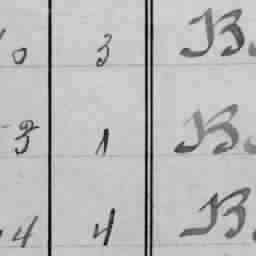 0 3 B.
3 1 B.
4 4 B.